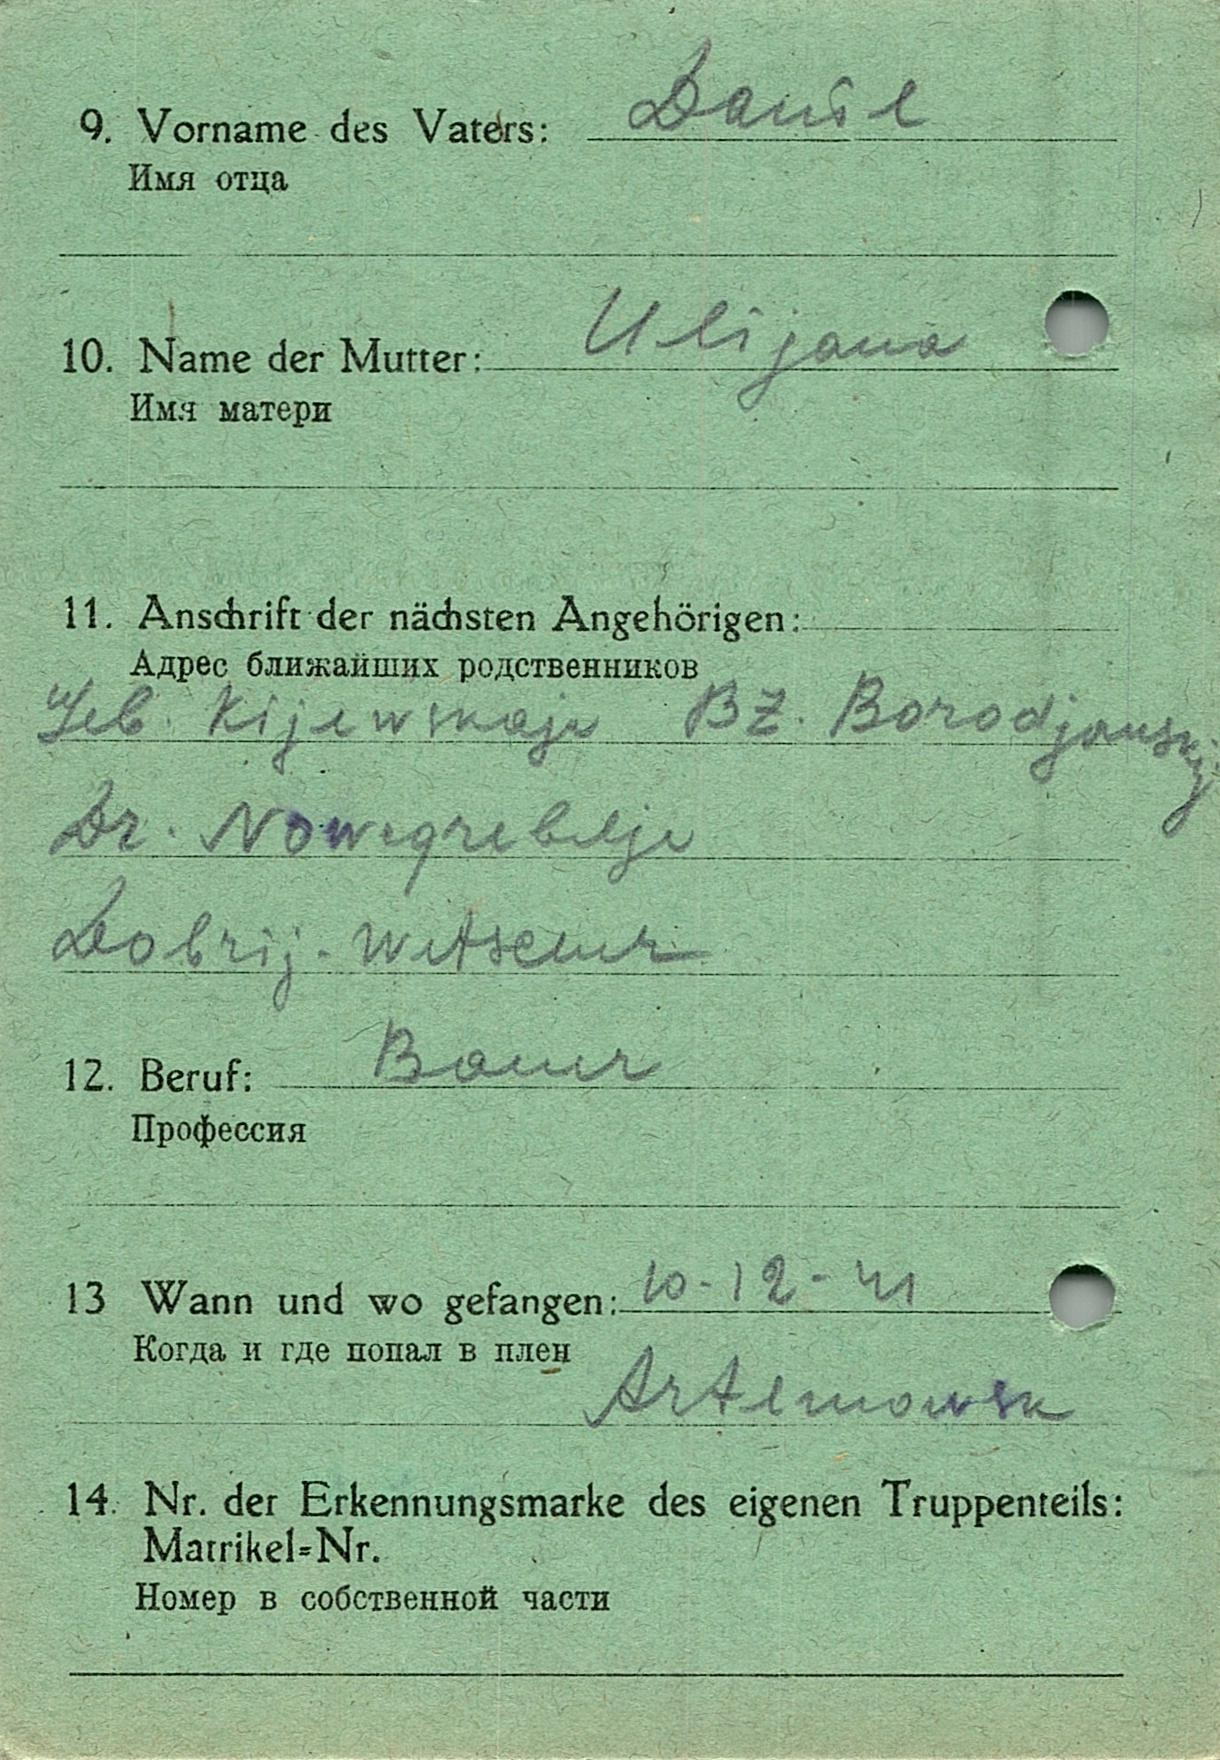 9. Vorname des Vaters: Daniel
Имя отца
10. Name der Mutter: Ulijana
Имя матери
11. Anschrift der nächsten Angehörigen:
Адрес ближайших родственников
Geb. Kijewskaja BZ. Borodjanskij
Dr. Nowegrebelje
Dobrij-
12. Beruf: Bauer
Профессия
13 Wann und wo gefangen: 10-12-41
Когда и где попал в плен
Artemowsk
14. Nr. der Erkennungsmarke des eigenen Truppenteils:
Matrikel-Nr.
Номер в собственной части